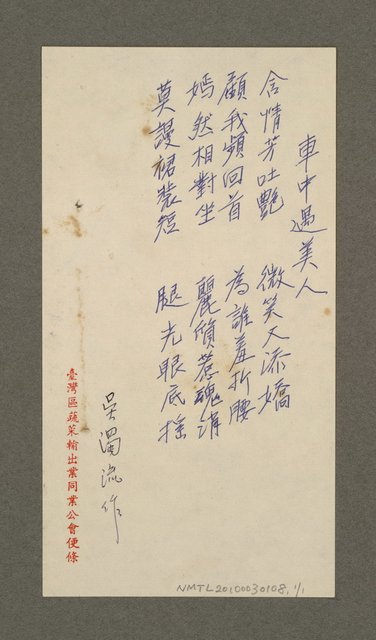 車中遇美人
含情芳吐艷 微笑又添嬌
顧我頻回首 為誰羞折腰
嫣然相對坐 麗質惹魂消
莫謾裙裝短 腿光眼底搖
吳濁流作
臺灣區蔬菜輸出業同業公會便條
NMTL20100030108, 1/1